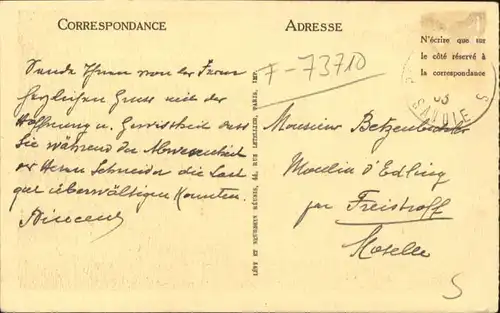 CORRESPONDANCE
ADRESSE
N'écrire que sur
le côté réservé à
la correspondance
7-73710
Sende Ihnen von der Ferne
herzlichen Gruss mit der
Hoffnung u. Gewissheit dass
Sie während der Abwesenheit
Herrn Schneider die Last
gut überwältigen konnten.
Vincent
LÉVY ET NEURDEIN RÉUNIS, 44, RUE LETELLIER, PARIS, IMP.
Monsieur
Moulin d'Edling
par Freistroff
Moselle
S